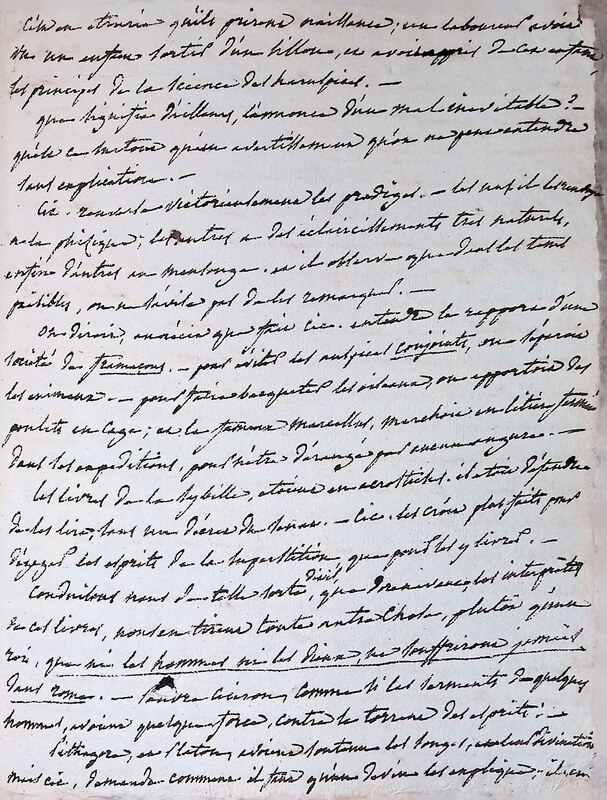 C'est en etrurie qu'ils prirent naissance; un laboureur avoit
vu un enfant sortir d'un sillon, et avoit appris de cet enfant
les principes de la science des haruspices. —
que signifie d'ailleurs, l'annonce d'un mal inévitable? —
qu'est ce surtout qu'un avertissement qu'on ne peut entendre
sans explication. —
Cic. renverse victorieusement les prodiges. — les uns il les renvoye
a la phisique; les autres a des éclaircissements tres naturels,
enfin d'autres au mensonge. et il observe que dans les tems
paisibles, on ne s'avise pas de les remarquer. —
On diroit, au récit que fait Cic. entendre le rapport d'une
société de frimaçons. — pour éviter les auspices conjoints, on séparoit
les animaux. — pour faire becqueter les oiseaux, on apportoit des
poulets en cage; et le fameux marcellus, marchoit en litiere fermée
dans les expeditions, pour n'être dérangé par aucun augure. —
les livres de la sybille, etoient en acrostiches. il etoit défendu
de les lire, sans un décret du senat. — Cic. les croit plus faits pour
dégager les esprits de la superstition, que pour les y livrer. —
Conduisons nous de telle sorte, dit-il, que dorenavant, les interprètes
de ces livres, nous en tirent toute autre chose, plutôt qu'un
roi, que ni les hommes ni les dieux, ne souffriront jamais
dans rome. — Pauvre ciceron, comme si les serments de quelques
hommes, avoient quelque force, contre le torrent des esprits! —
Pithagore, et Platon, avoient soutenu les songes, et leur divination
mais cic. demande comment il faut qu'un devin les explique. il en